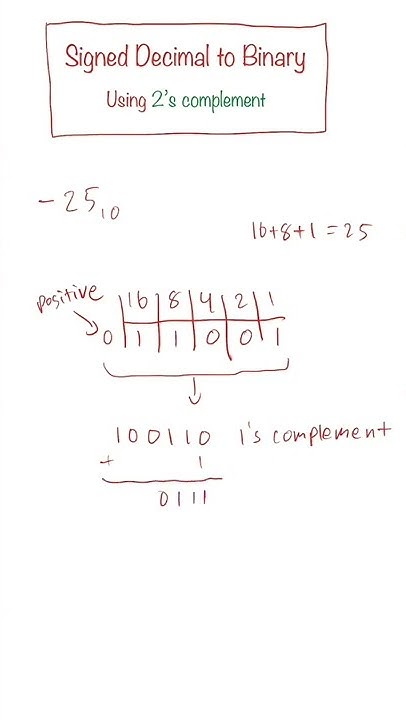 Signed Decimal to Binary
Using 2's complement
-25₁₀
16+8+1=25
positive
16 8 4 2 1
0 1 1 0 0 1
100110 1's complement
+ 1
0111